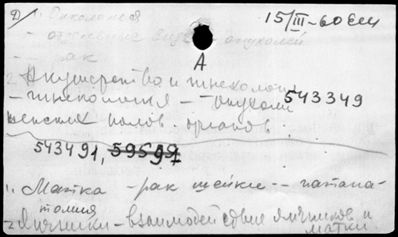 Д/ Онкология 15/III-60 ЕМ
- отдельные виды опухолей
- рак
А
2. Акушерство и гинекология
- гинекология - опухоли 543349
женских полов. органов.
543491, 59597
1. Матка - рак шейки - патана-
томия
2. Яичники - взаимодействие яичников и
матки